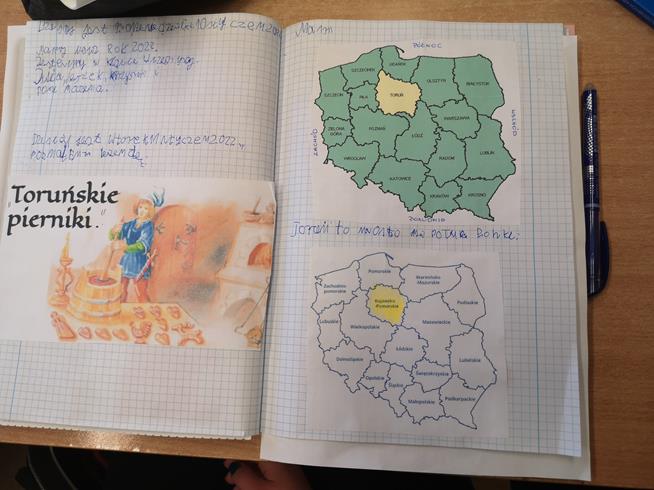 Dzisiaj jest Poniedziałek 10 stycznia 2022
mamy nowy Rok 2022.
Jesteśmy w klasie
Julka, Jurek, Krzysiu i
pani Marzena.
Dzisiaj jest wtorek 11 stycznia 2022
"Toruńskie
pierniki."
PÓŁNOC
GDAŃSK
SZCZECINEK
OLSZTYN
BIAŁYSTOK
SZCZECIN
PIŁA
TORUŃ
WARSZAWA
ZIELONA GÓRA
POZNAŃ
ŁÓDŹ
LUBLIN
WROCŁAW
RADOM
KATOWICE
KRAKÓW
KROSNO
ZACHÓD
WSCHÓD
POŁUDNIE
Toruń to miasto na północy Polski.
Pomorskie
Warmińsko-
Mazurskie
Zachodnio-
pomorskie
Kujawsko
-Pomorskie
Podlaskie
Lubuskie
Wielkopolskie
Mazowieckie
Łódzkie
Dolnośląskie
Lubelskie
Opolskie
Świętokrzyskie
Śląskie
Małopolskie
Podkarpackie